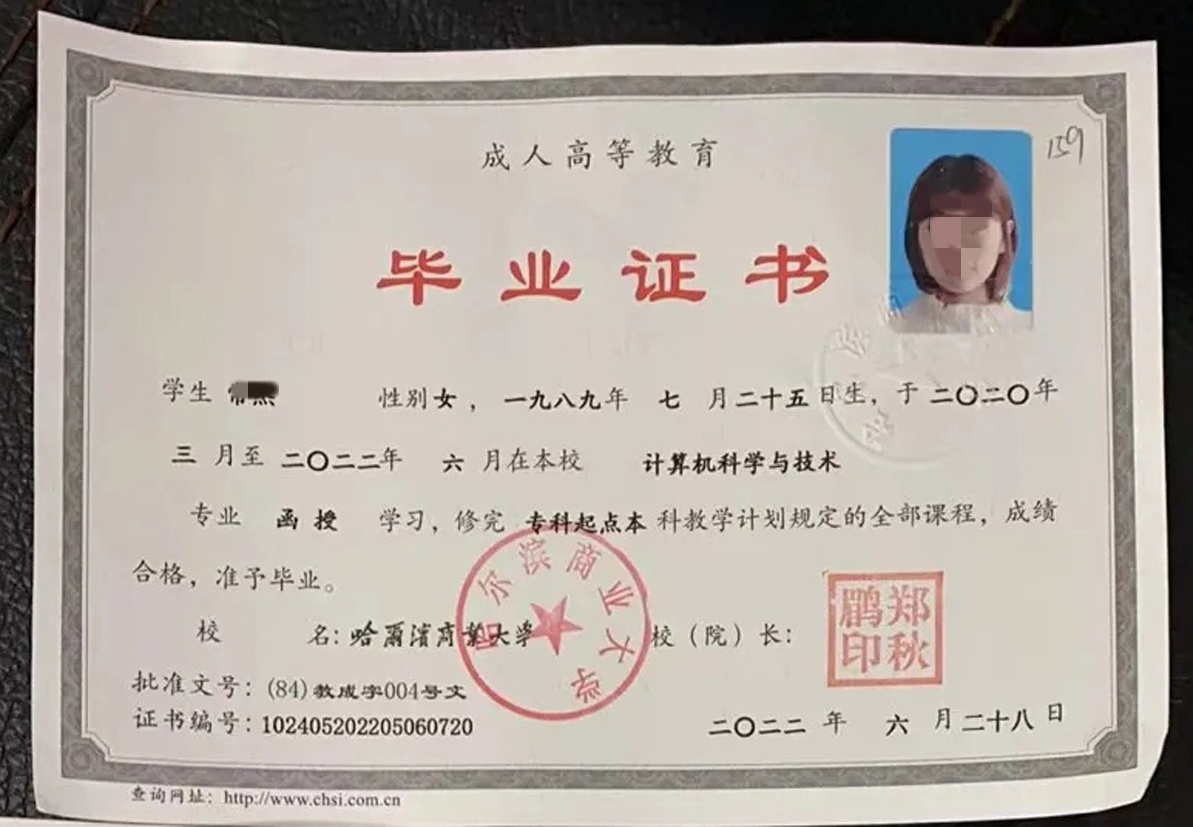 成人高等教育
159
毕业证书
学生 性别女，一九八九年 七 月二十五日生，于二〇二〇年
三 月至 二〇二二年 六 月在本校 计算机科学与技术
专业 函授 学习，修完 专科起点本 科教学计划规定的全部课程，成绩
合格，准予毕业。
校 名：哈爾濱商業大学 校（院）长：
哈尔滨商业大学
郑秋鹏印
批准文号：(84)教成字004号文
证书编号：102405202205060720
二〇二二 年 六 月二十八日
查询网址：http://www.chsi.com.cn